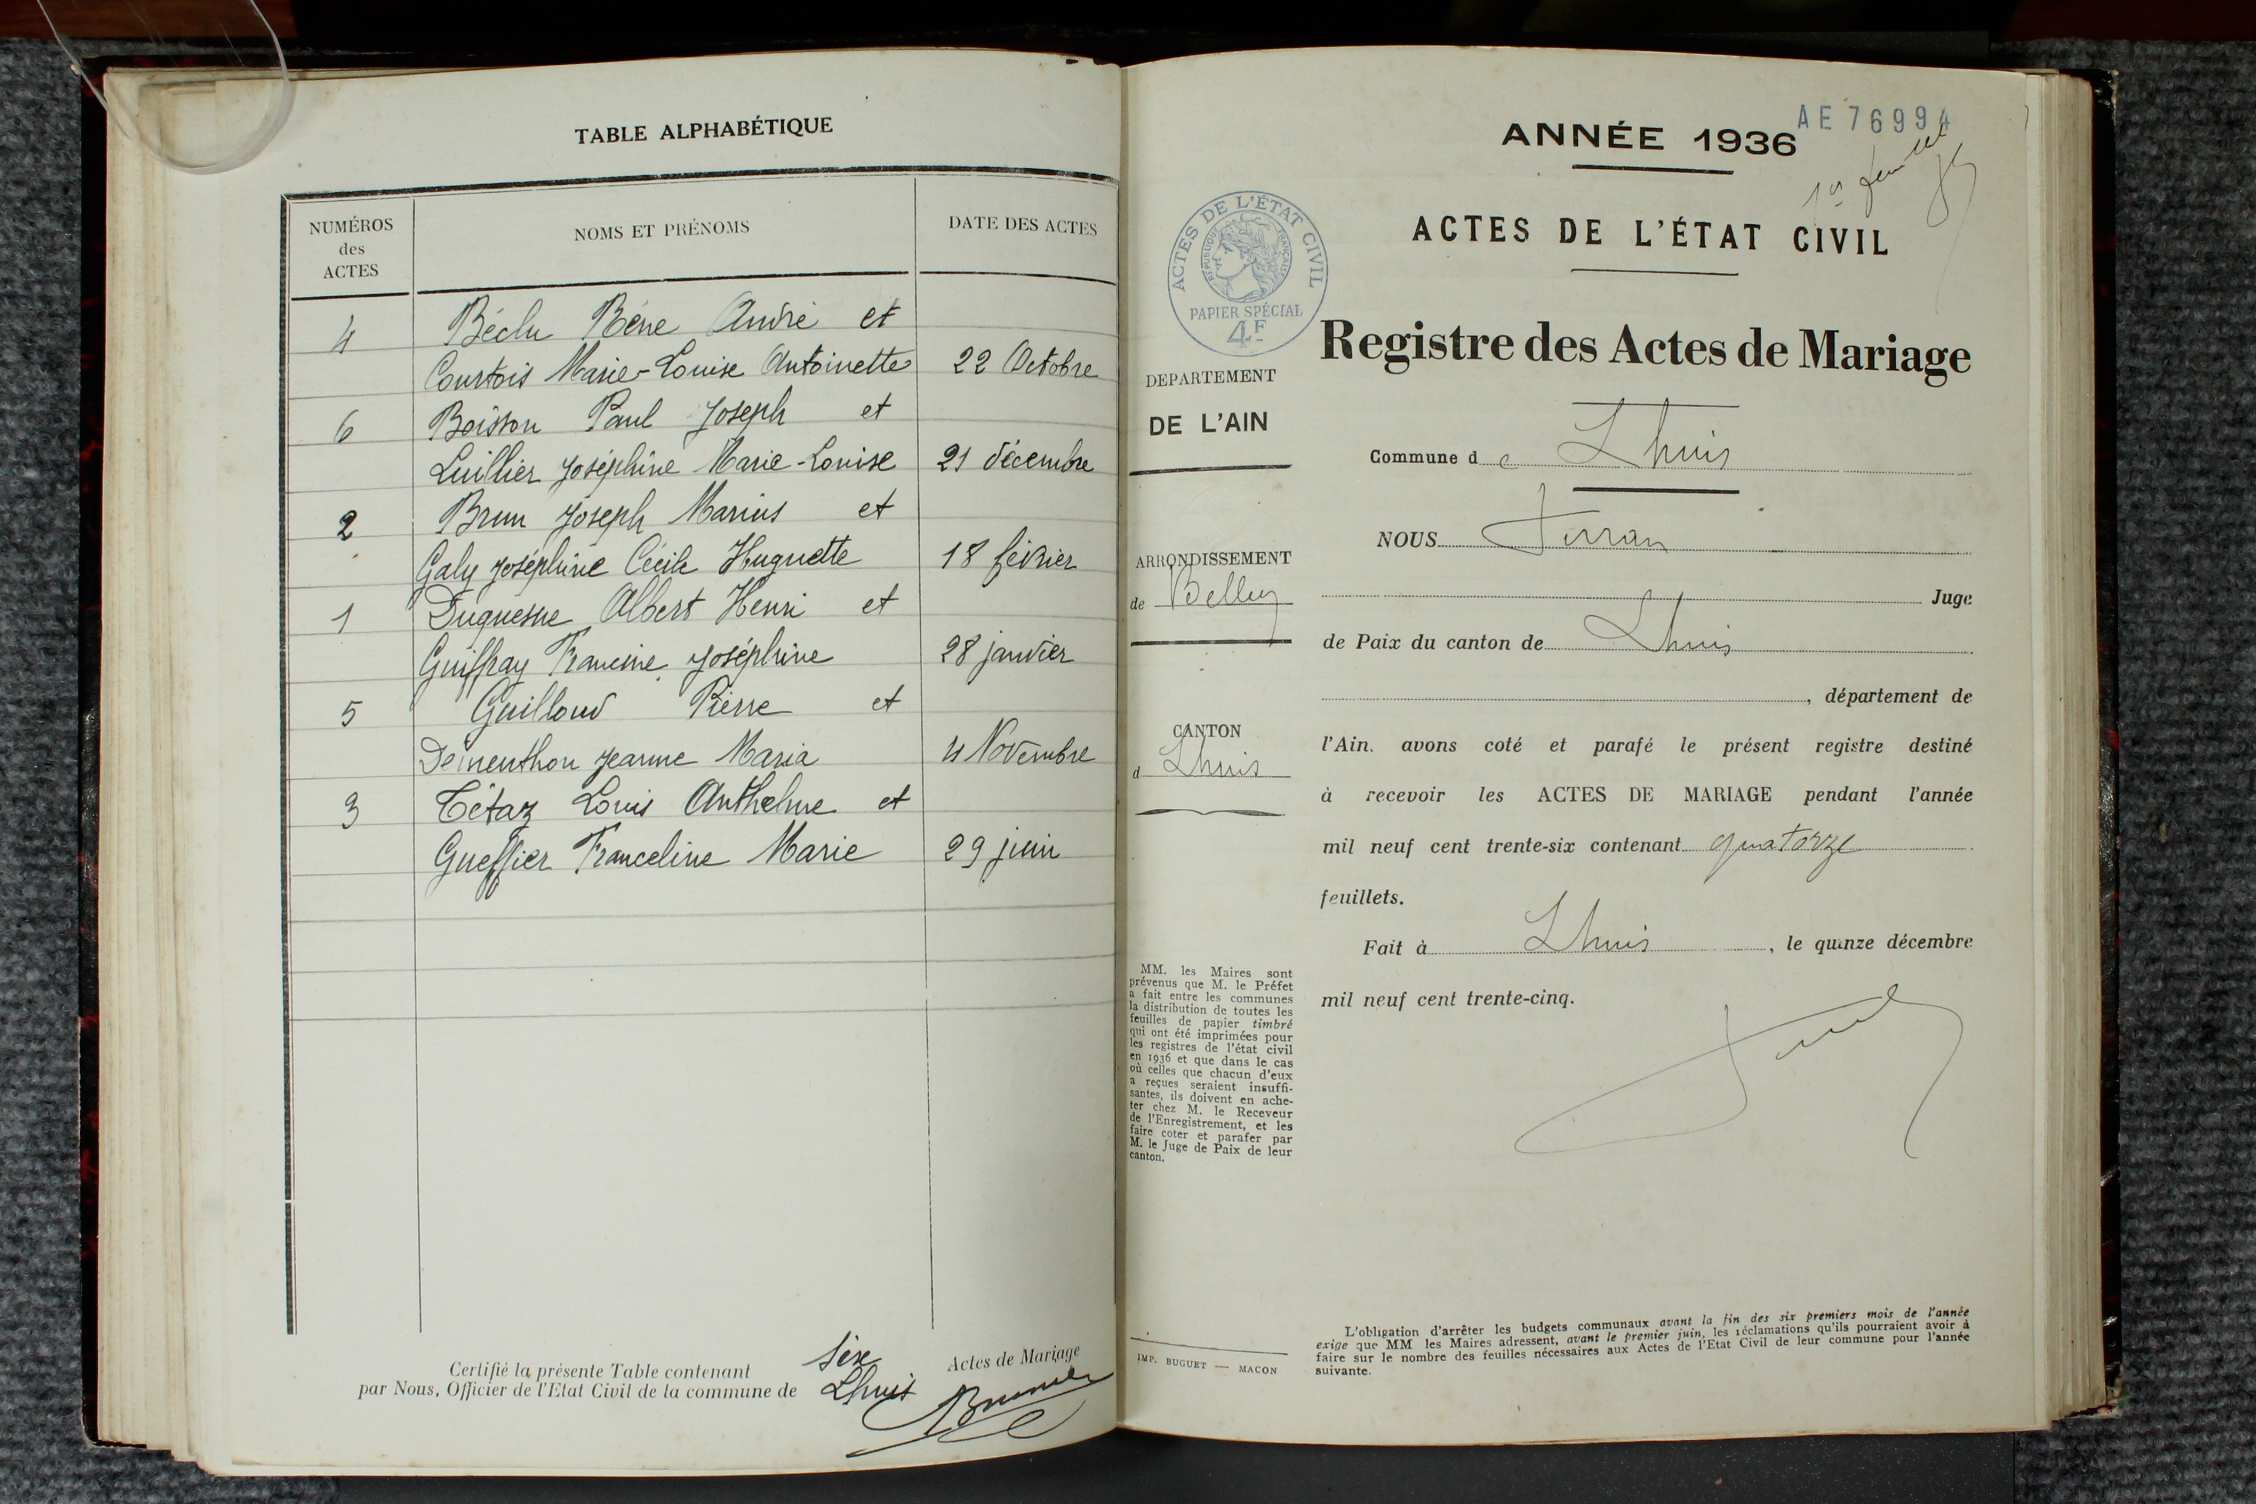 TABLE ALPHABÉTIQUE
NUMÉROS
des
ACTES
NOMS ET PRÉNOMS
DATE DES ACTES
4 Béclu Réne André et
Courtois Marie-Louise Antoinette 22 Octobre
6 Boisson Paul Joseph et
Luillier Joséphine Marie-Louise 21 décembre
2 Brun Joseph Marius et
Galy Joséphine Cécile Huguette 18 février
1 Duquesne Albert Henri et
Guiffray Francine Joséphine 28 janvier
5 Guilloud Pierre et
Dementhon Jeanne Maria 4 Novembre
3 Tétaz Louis Anthelme et
Gueffier Franceline Marie 29 juin
Certifié la présente Table contenant six Actes de Mariage
par Nous, Officier de l'Etat Civil de la commune de Lhuis
AE 76994
ANNÉE 1936
ACTES DE L'ÉTAT CIVIL
ACTES DE L'ÉTAT CIVIL
RÉPUBLIQUE FRANÇAISE
PAPIER SPÉCIAL
4F
Registre des Actes de Mariage
DEPARTEMENT
DE L'AIN
ARRONDISSEMENT
de Belley
CANTON
d Lhuis
MM. les Maires sont
prévenus que M. le Préfet
a fait entre les communes
la distribution de toutes les
feuilles de papier timbré
qui ont été imprimées pour
les registres de l'état civil
en 1936 et que dans le cas
où celles que chacun d'eux
a reçues seraient insuffi-
santes, ils doivent en ache-
ter chez M. le Receveur
de l'Enregistrement, et les
faire coter et parafer par
M. le Juge de Paix de leur
canton.
IMP. BUGUET — MACON
Commune d e Lhuis
NOUS
Juge
de Paix du canton de Lhuis
, département de
l'Ain. avons coté et parafé le présent registre destiné
à recevoir les ACTES DE MARIAGE pendant l'année
mil neuf cent trente-six contenant quatorze
feuillets.
Fait à Lhuis, le quinze décembre
mil neuf cent trente-cinq.
L'obligation d'arrêter les budgets communaux avant la fin des six premiers mois de l'année
exige que MM les Maires adressent, avant le premier juin, les réclamations qu'ils pourraient avoir à
faire sur le nombre des feuilles nécessaires aux Actes de l'Etat Civil de leur commune pour l'année
suivante.